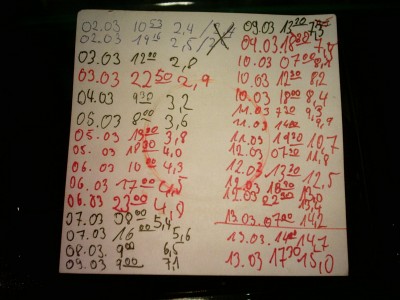 02.03 10 53 2,4
02.03 19 15 2,5
03.03 12 00 2,8
03.03 22 50 2,9
04.03 9 30 3,2
05.03 8 00 3,6
05.03 3,8
05.03 18 4,0
06.03 10 00 4,3
06.03 17 00 4,5
06.03 23 00 4,9
07.03 08 00 5,4
07.03 16 00 5,6
08.03 9 00 6,5
09.03 9 00 7,1
09.03 13 20
09.03 18 00 7,8
10.03 07 00
10.03 12 30 8,2
10.03 18 00 8,4
11.03 7 30
11.03 14 00 9,9
11.03 19 30 10,7
12.03 07 30
12.03 13 30 12,5
12.03 18 30
12.03 22 30
13.03 07 00 14,2
13.03 14 00 14,7
13.03 17 30 15,0